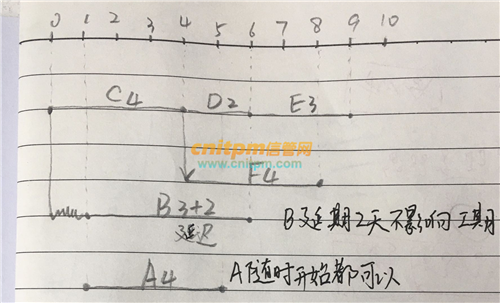 0 1 2 3 4 5 6 7 8 9 10
C4 D2 E3
cnitpm信管网
www.cnitpm.com
F4
B 3+2 B延期2天不影响工期
延迟
A4 A随时开始都可以